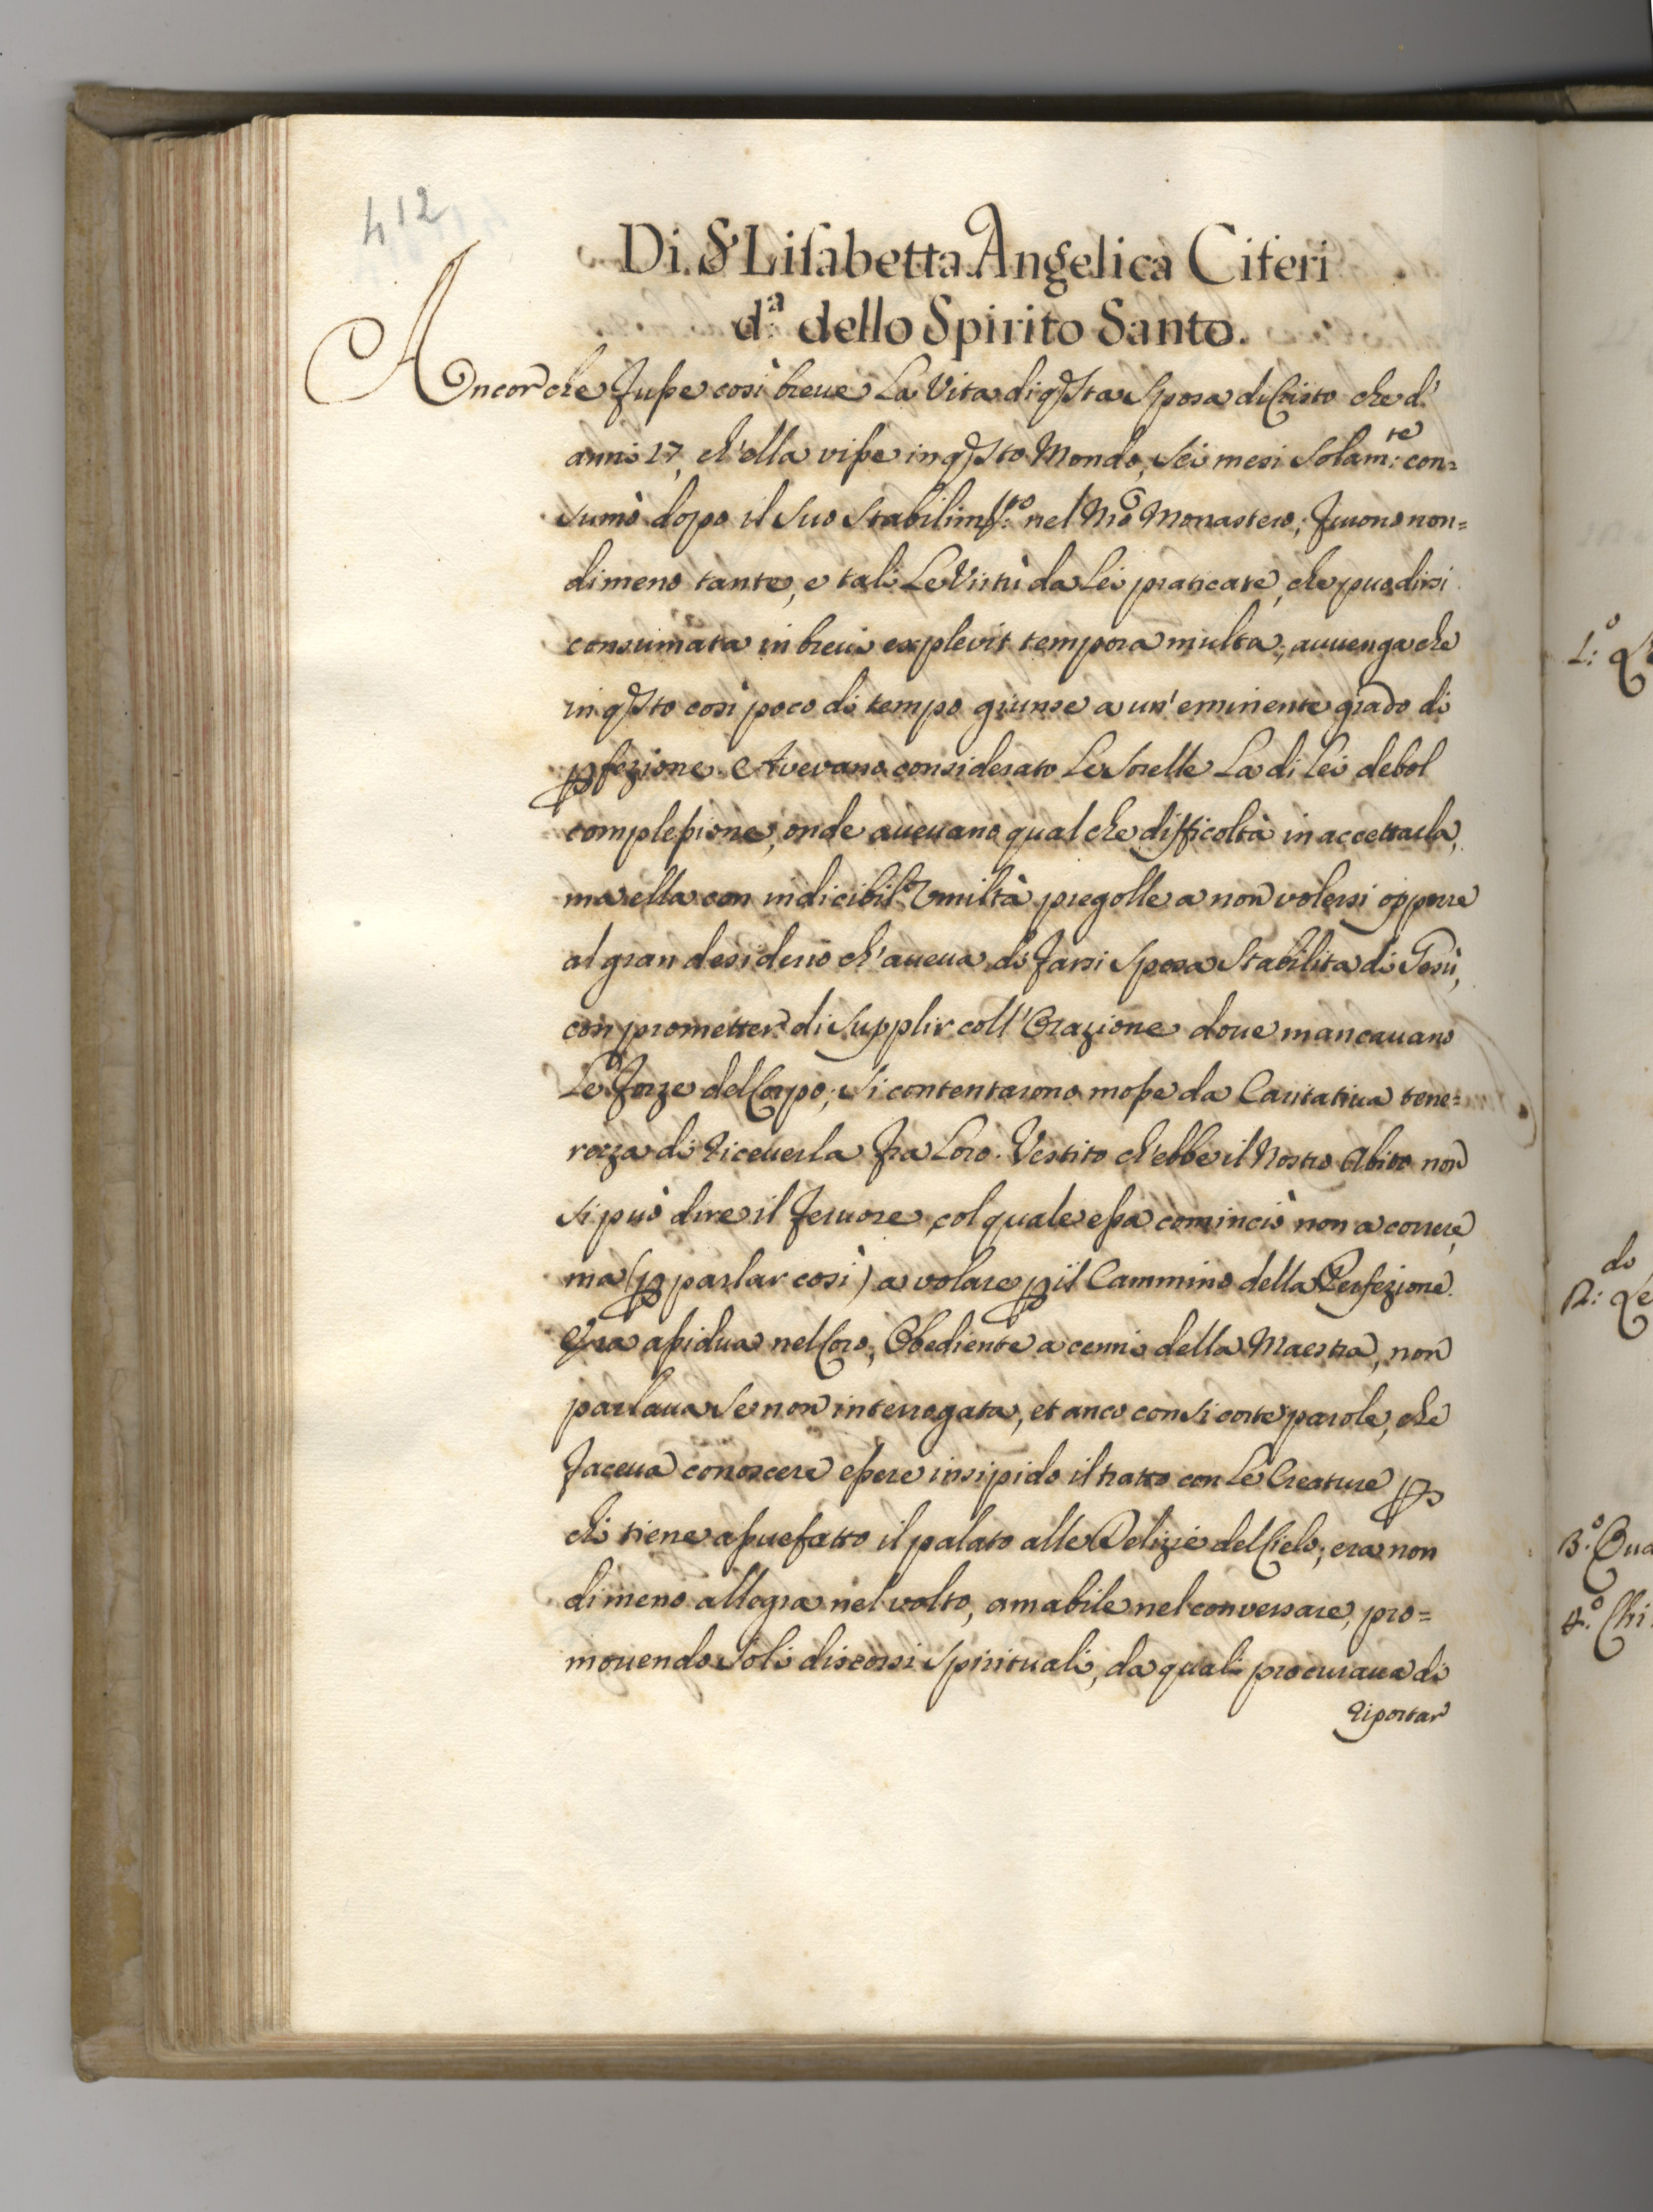 412
Di S.r Lisabetta Angelica Citeri
d.a dello Spirito Santo.
Ancorche fusse così breue La Vita di q̃sta Sposa di Cristo che d'
anni 17, ch'ella visse in q̃sto Mondo, Sei mesi Solam:te con=
sumò dopo il suo Stabilim:to nel Nrõ Monastero; furono non=
dimeno tante, e tali Le Virtù da Lei praticate, che puo dirsi
consumata in breui explevit tempora multa; auuenga che
in q̃sto così poco di tempo giunse a un' eminente grado di
ꝑfezione. Avevano considerato Le Sorelle La di Lei debol
complessione, onde aueuano qualche difficoltà in accettarla,
ma ella con indicibil' Umiltà pregolle a non volersi opporre
al gran desiderio ch'aueua di farsi Sposa Stabilita di Giesù,
con prometter di Supplir coll' Orazione doue mancauano
Le forze del Corpo; Si contentarono mosse da Caritatiua tene=
rezza di riceuerla fra Loro. Vestito ch'ebbe il Nostro Abito non
Si può dire il feruore, col quale essa cominciò non a correre,
ma (ꝑ parlar così) a volare ꝑ il Cammino della Perfezione.
Era assidua nel Coro, Obediente a cenni della Maestra, non
parlaua Se non interrogata, et anco con Si corte parole, che
faceua conoscere essere insipido il tratto con Le Creature ꝑ
chi tiene assuefatto il palato alle Delizie del Cielo; era non
dimeno allegra nel volto, amabile nel conversare, pro=
mouendo Soli discorsi Spirituali, da quali procuraua di
riportar
1:o
do
2:
3.o
4.o Chi